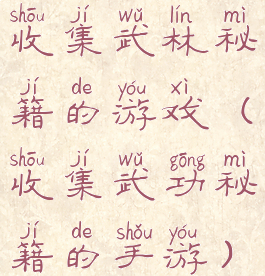 shōu jí wǔ lín mì
收集武林秘
jí de yóu xì
籍的游戏（
shōu jí wǔ gōng mì
收集武功秘
jí de shǒu yóu
籍的手游）